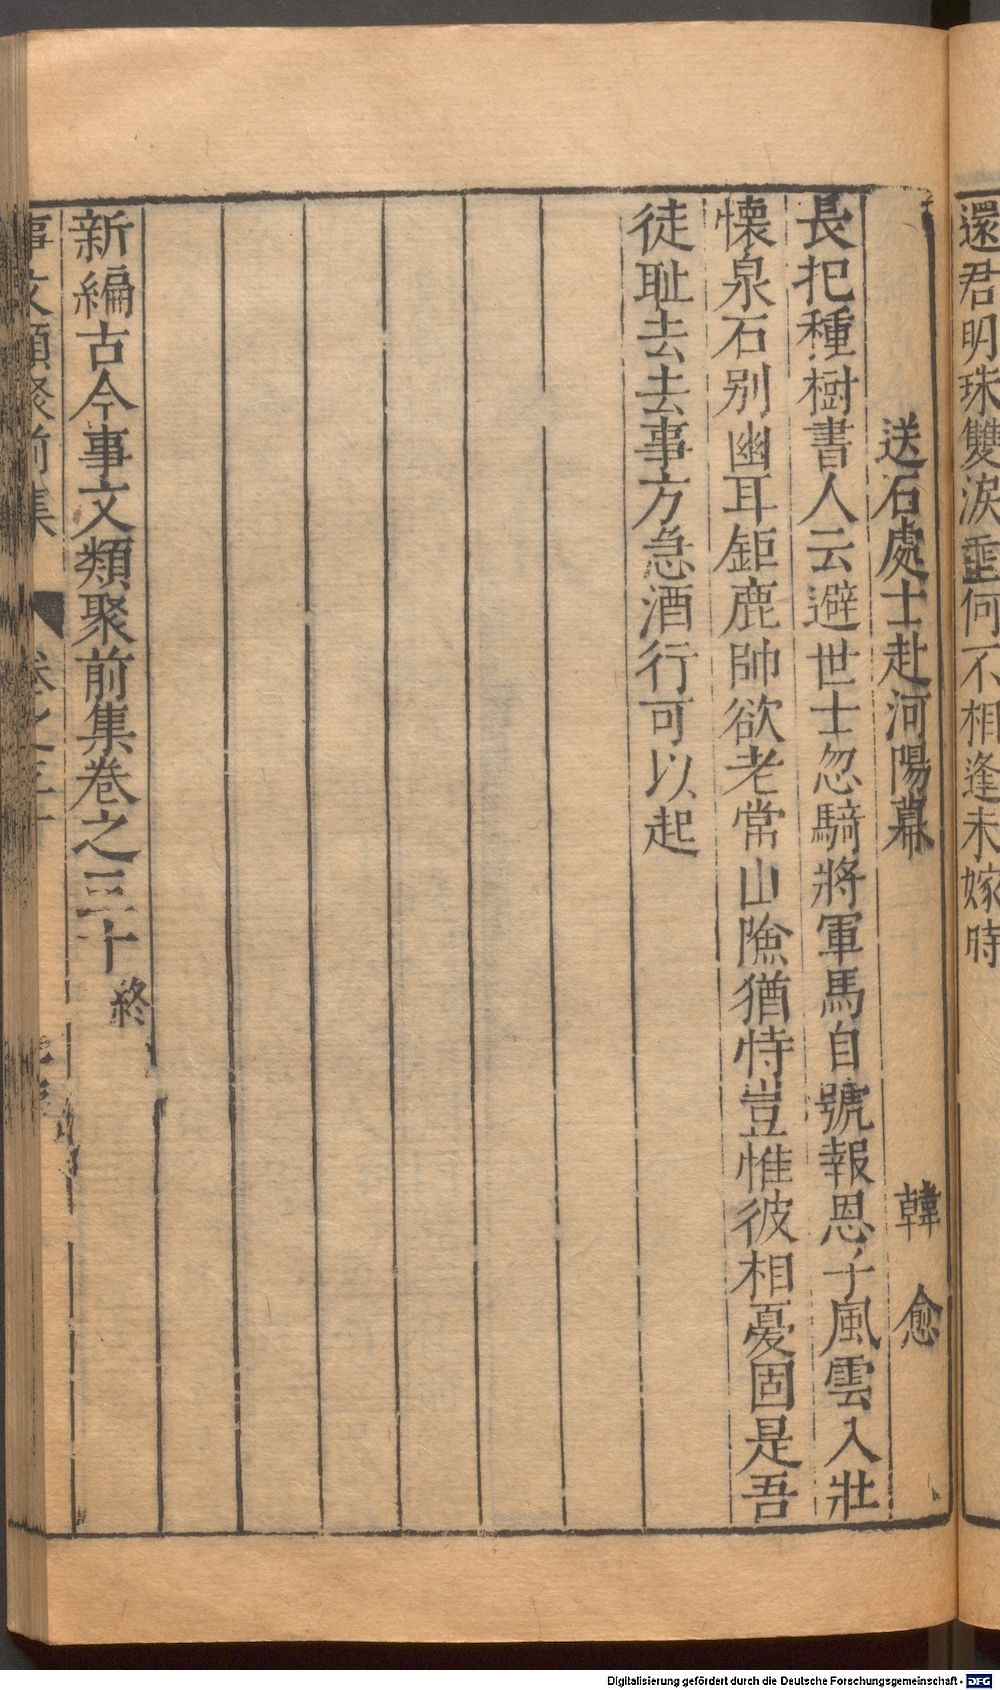 還君明珠雙淚垂何不相逢未嫁時
送石處士赴河陽幕 韓愈
長把種樹書人云避世士忽騎將軍馬自號報恩子風雲入壯
懐泉石别幽耳鉅鹿帥欲老常山險猶恃豈惟彼相憂固是吾
徒耻去去事方急酒行可以起
新編古今事文類聚前集卷之三十終
事文類聚前集 卷之三十
Digitalisierung gefördert durch die Deutsche Forschungsgemeinschaft - DFG